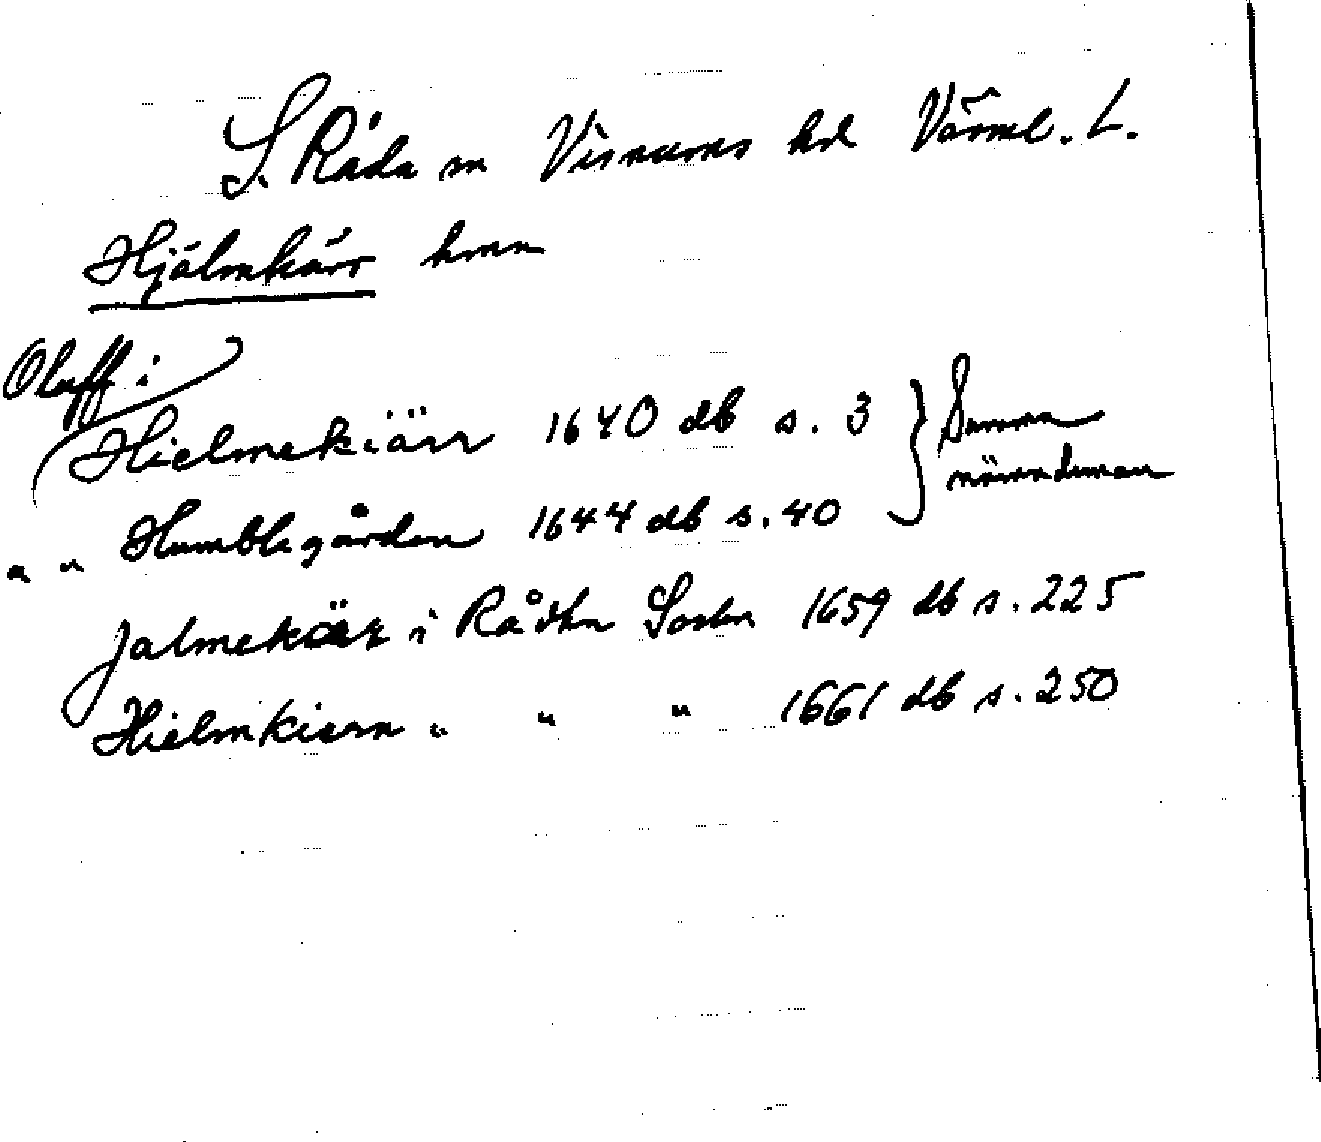 S. Råda sn Visnums hd Värml. L.
Hjälmkärr hmn
Oluff i
Hielmekiärr 1640 db s. 3 } Samma
nämndeman
" " Humblegården 1644 db s. 40
Jalmekärr i Rådha Sochn 1659 db s. 225
Hielmkiern " " " 1661 db s. 250